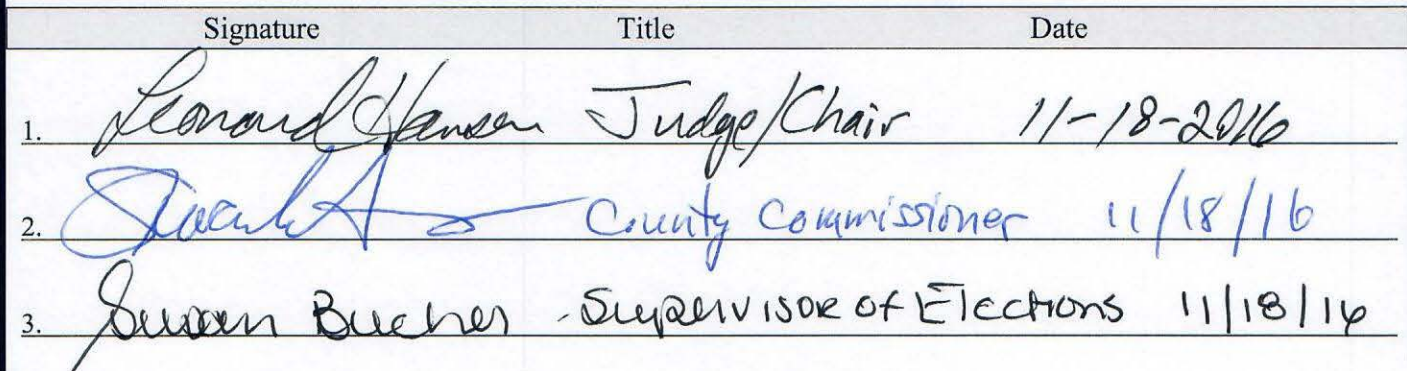 Signature Title Date
1. Leonard Hansen Judge/Chair 11-18-2016
2. County Commissioner 11/18/16
3. Susan Bucher Supervisor of Elections 11/18/16